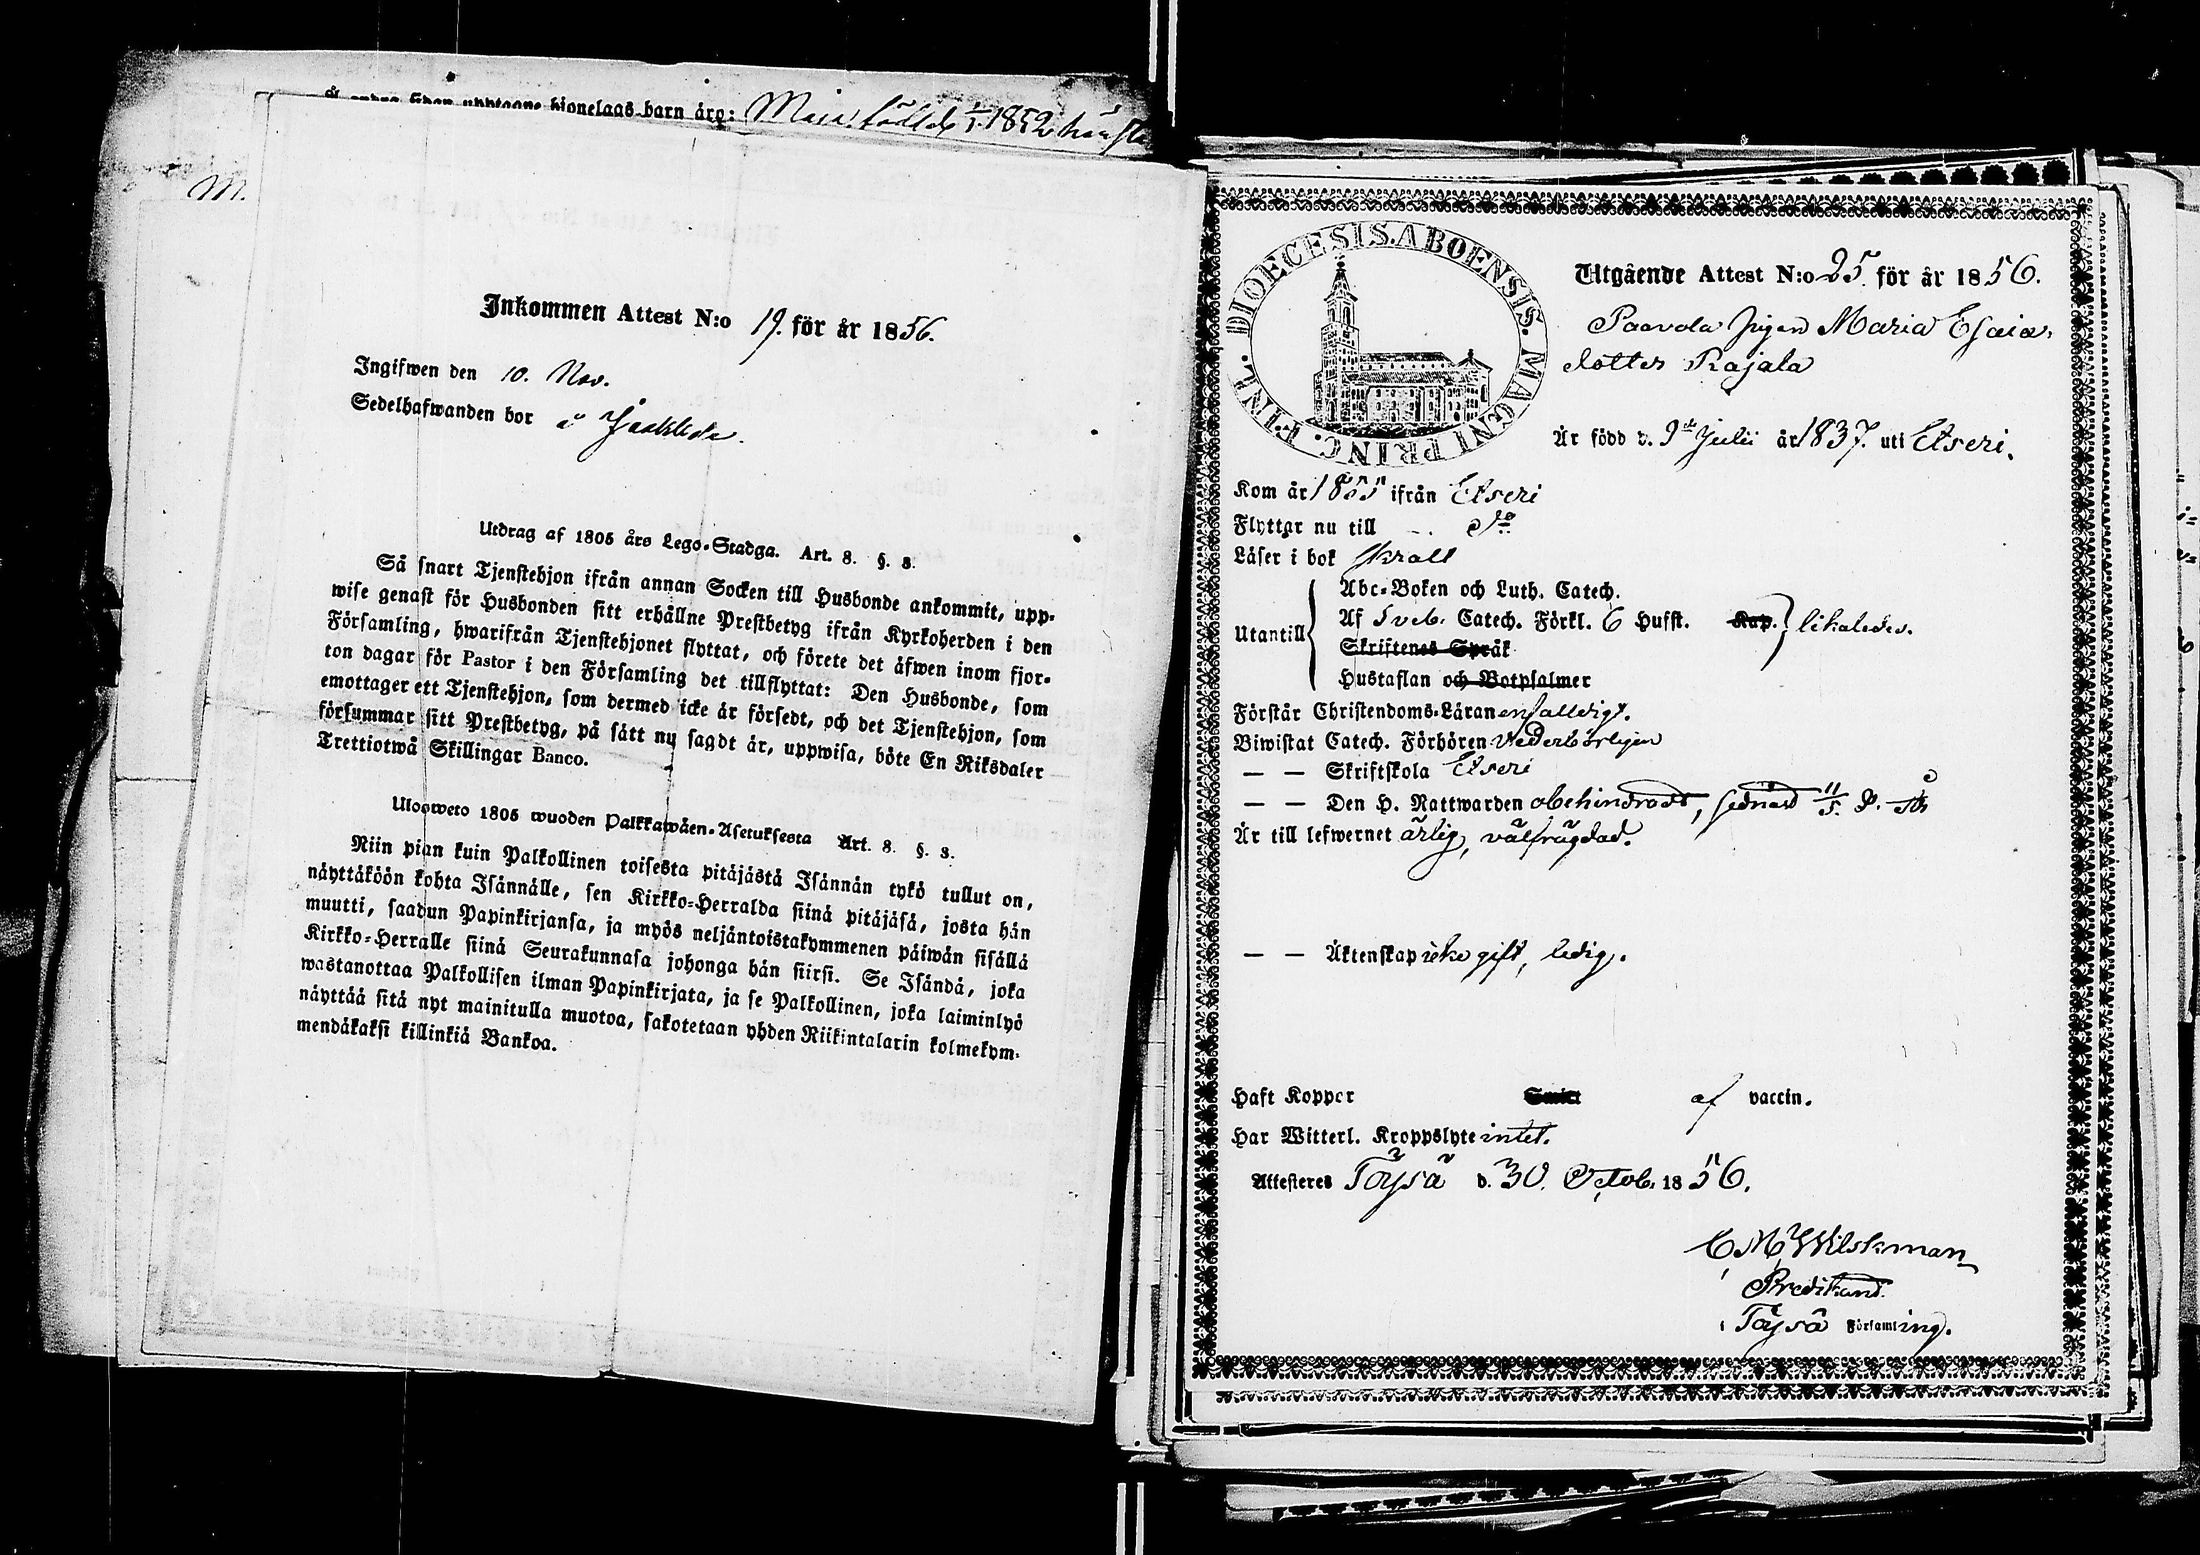 hionelags barn äro: Maja född d. 1/1 1852
M.
Inkommen Attest N:o 19. för år 1856.
Ingifwen den 10. Nov.
Sedelhafwanden bor å
Utdrag af 1805 års Lego-Stadga. Art. 8. §. 3.
Så snart Tjenstehjon ifrån annan Socken till Husbonde ankommit, upp-
wise genast för Husbonden sitt erhållne Prestbetyg ifrån Kyrkoherden i den
Församling, hwarifrån Tjenstehjonet flyttat, och förete det äfwen inom fjor-
ton dagar för Pastor i den Församling det tillflyttat: Den Husbonde, som
emottager ett Tjenstehjon, som dermed icke är försedt, och det Tjenstehjon, som
försummar sitt Prestbetyg, på sätt nu sagdt är, uppwisa, böte En Riksdaler
Trettiotwå Skillingar Banco.
Ulosweto 1805 wuoden Palkkawäen-Asetuksesta Art. 8. §. 3.
Niin pian kuin Palkollinen toisesta pitäjästä Isännän tykö tullut on,
näyttäköön kohta Isännälle, sen Kirkko-Herralda siinä pitäjäsä, josta hän
muutti, saadun Papinkirjansa, ja myös neljäntoistakymmenen päiwän sisällä
Kirkko-Herralle siinä Seurakunnasa johonga hän siirsi. Se Isändä, joka
wastanottaa Palkollisen ilman Papinkirjata, ja se Palkollinen, joka laiminlyö
näyttää sitä nyt mainitulla muotoa, sakotetaan yhden Riikintalarin kolmekym-
mendäkaksi killinkiä Bankoa.
DIOECESIS. ABOENSIS. MAGNI PRINC. FINL.
Utgående Attest N:o 25. för år 1856.
Paavola Pigan Maria Esaia
dotter Rajala
Är född d. 9de Julii år 1837. uti Etseri.
Kom år 1855 ifrån Etseri
Flyttar nu till - . do
Läser i bok svalt
Abc-Boken och Luth. Catech.
Utantill Af Sveb. Catech. Förkl. 6 Hufst. Kap. likaledes.
Skriftenes Språk
Hustaflan och Botpsalmer
Förstår Christendoms-Läran enfalldigt.
Biwistat Catech. Förhören vederbörligen
— — Skriftskola Etseri
— — Den H. Nattwarden obehindradt, sednast 11/5.
Är till lefwernet ärlig, välfrägdad.
— — Äktenskap icke gift, ledig.
Haft Koppor Smitt af vaccin.
Har Witterl. Kroppslyte intet.
Attesteres Töysä d. 30. Octob. 1856.
C M Wilskman
Predikand.
i Töysä Församling.